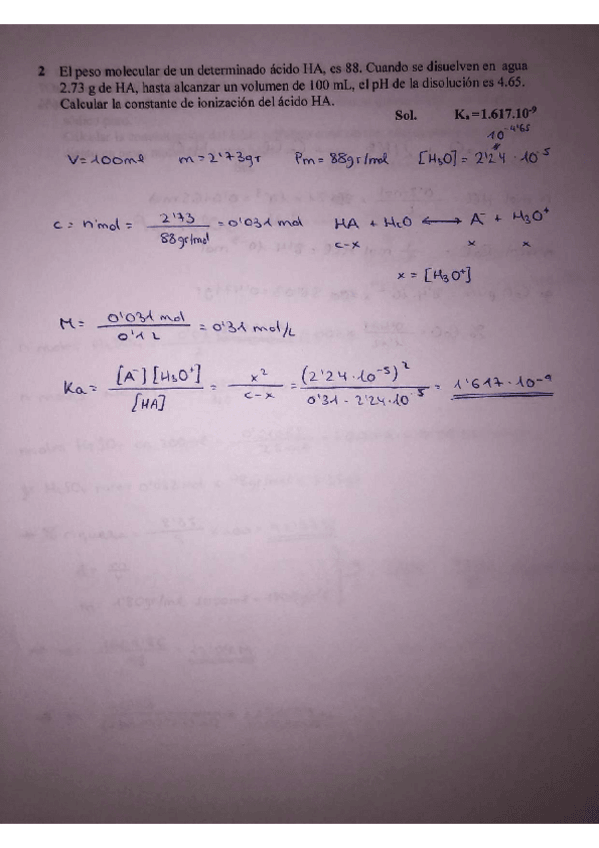 2 El peso molecular de un determinado ácido HA, es 88. Cuando se disuelven en agua
2.73 g de HA, hasta alcanzar un volumen de 100 mL, el pH de la disolución es 4.65.
Calcular la constante de ionización del ácido HA.
Sol. Kₐ=1.617.10⁻⁹
10⁻⁴'⁶⁵
V=100ml m=2'73gr Pm=88gr/mol [H₃O]=2'24·10⁻⁵
c = n'mol = 2'73 / 88gr/mol = 0'031 mol HA + H₂O ⟷ A⁻ + H₃O⁺
c-x x x
x = [H₃O⁺]
M = 0'031 mol / 0'1 L = 0'31 mol/L
Ka = [A⁻][H₃O⁺] / [HA] = x² / c-x = (2'24·10⁻⁵)² / 0'31 - 2'24·10⁻⁵ = 1'617·10⁻⁹